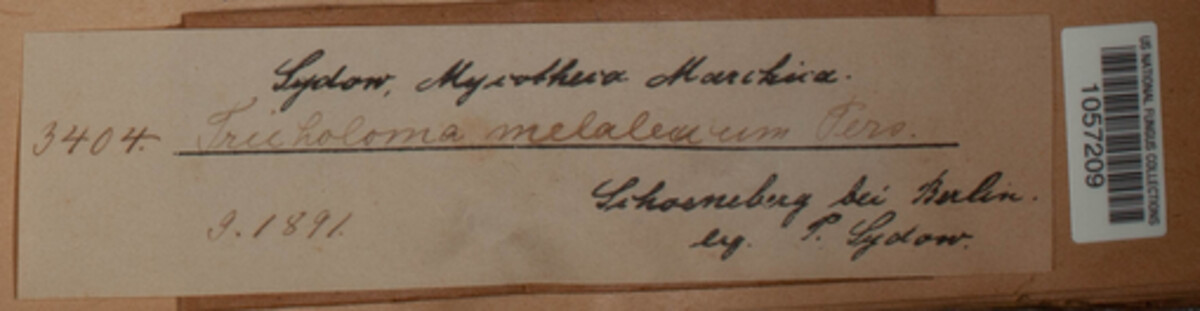 Sydow, Mycotheca Marchica.
3404. Tricholoma melaleucum Pers.
Schoeneberg bei Berlin.
9. 1891.
leg. P. Sydow.
US NATIONAL FUNGUS COLLECTIONS
1057209